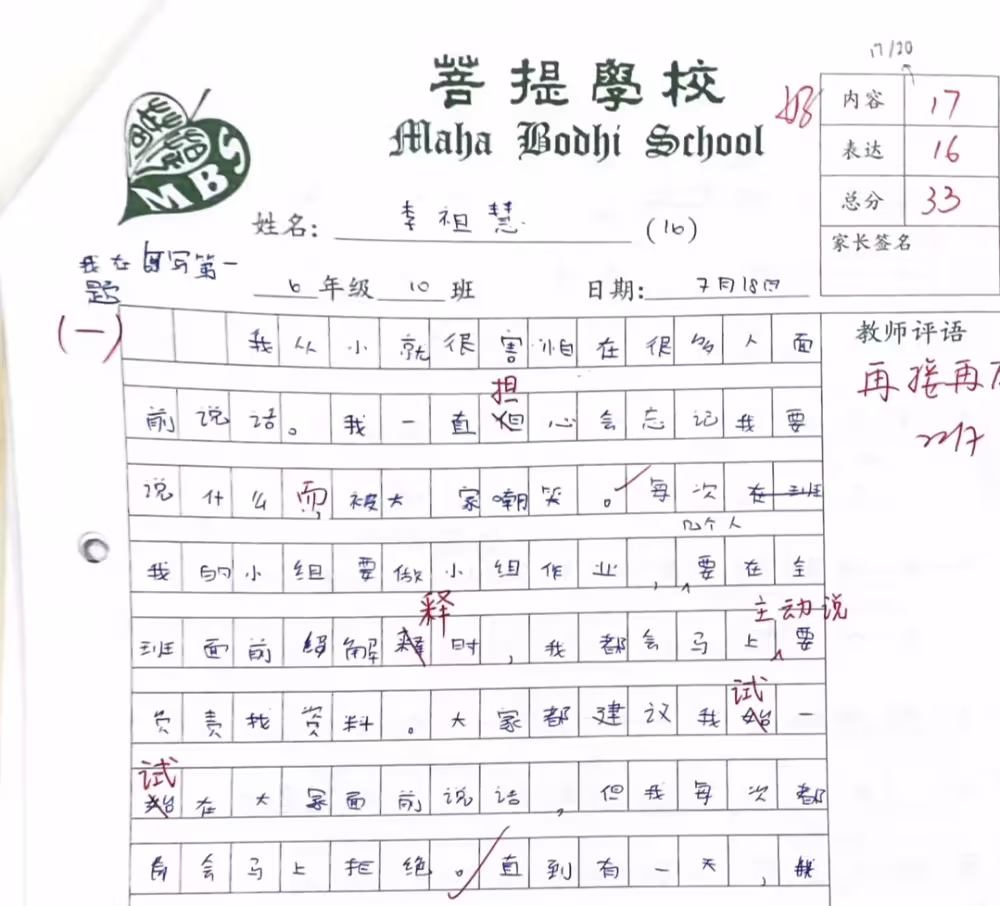 17/20
菩提學校
Maha Bodhi School
MBS
好
内容 17
表达 16
总分 33
家长签名
姓名: 李祖慧 (16)
我在写第一
题
6 年级 10 班 日期: 7月18日
(一)
教师评语
再接再
22/7
我从小就很害怕在很多人面
担
前说话。我一直但心会忘记我要
说什么而被大家嘲笑。每次在班
几个人
我的小组要做小组作业,要在全
释 主动说
班面前解时,我都会马上要
试
负责找资料。大家都建议我始一
试
始在大家面前说话,但我每次都
会马上拒绝。直到有一天,我